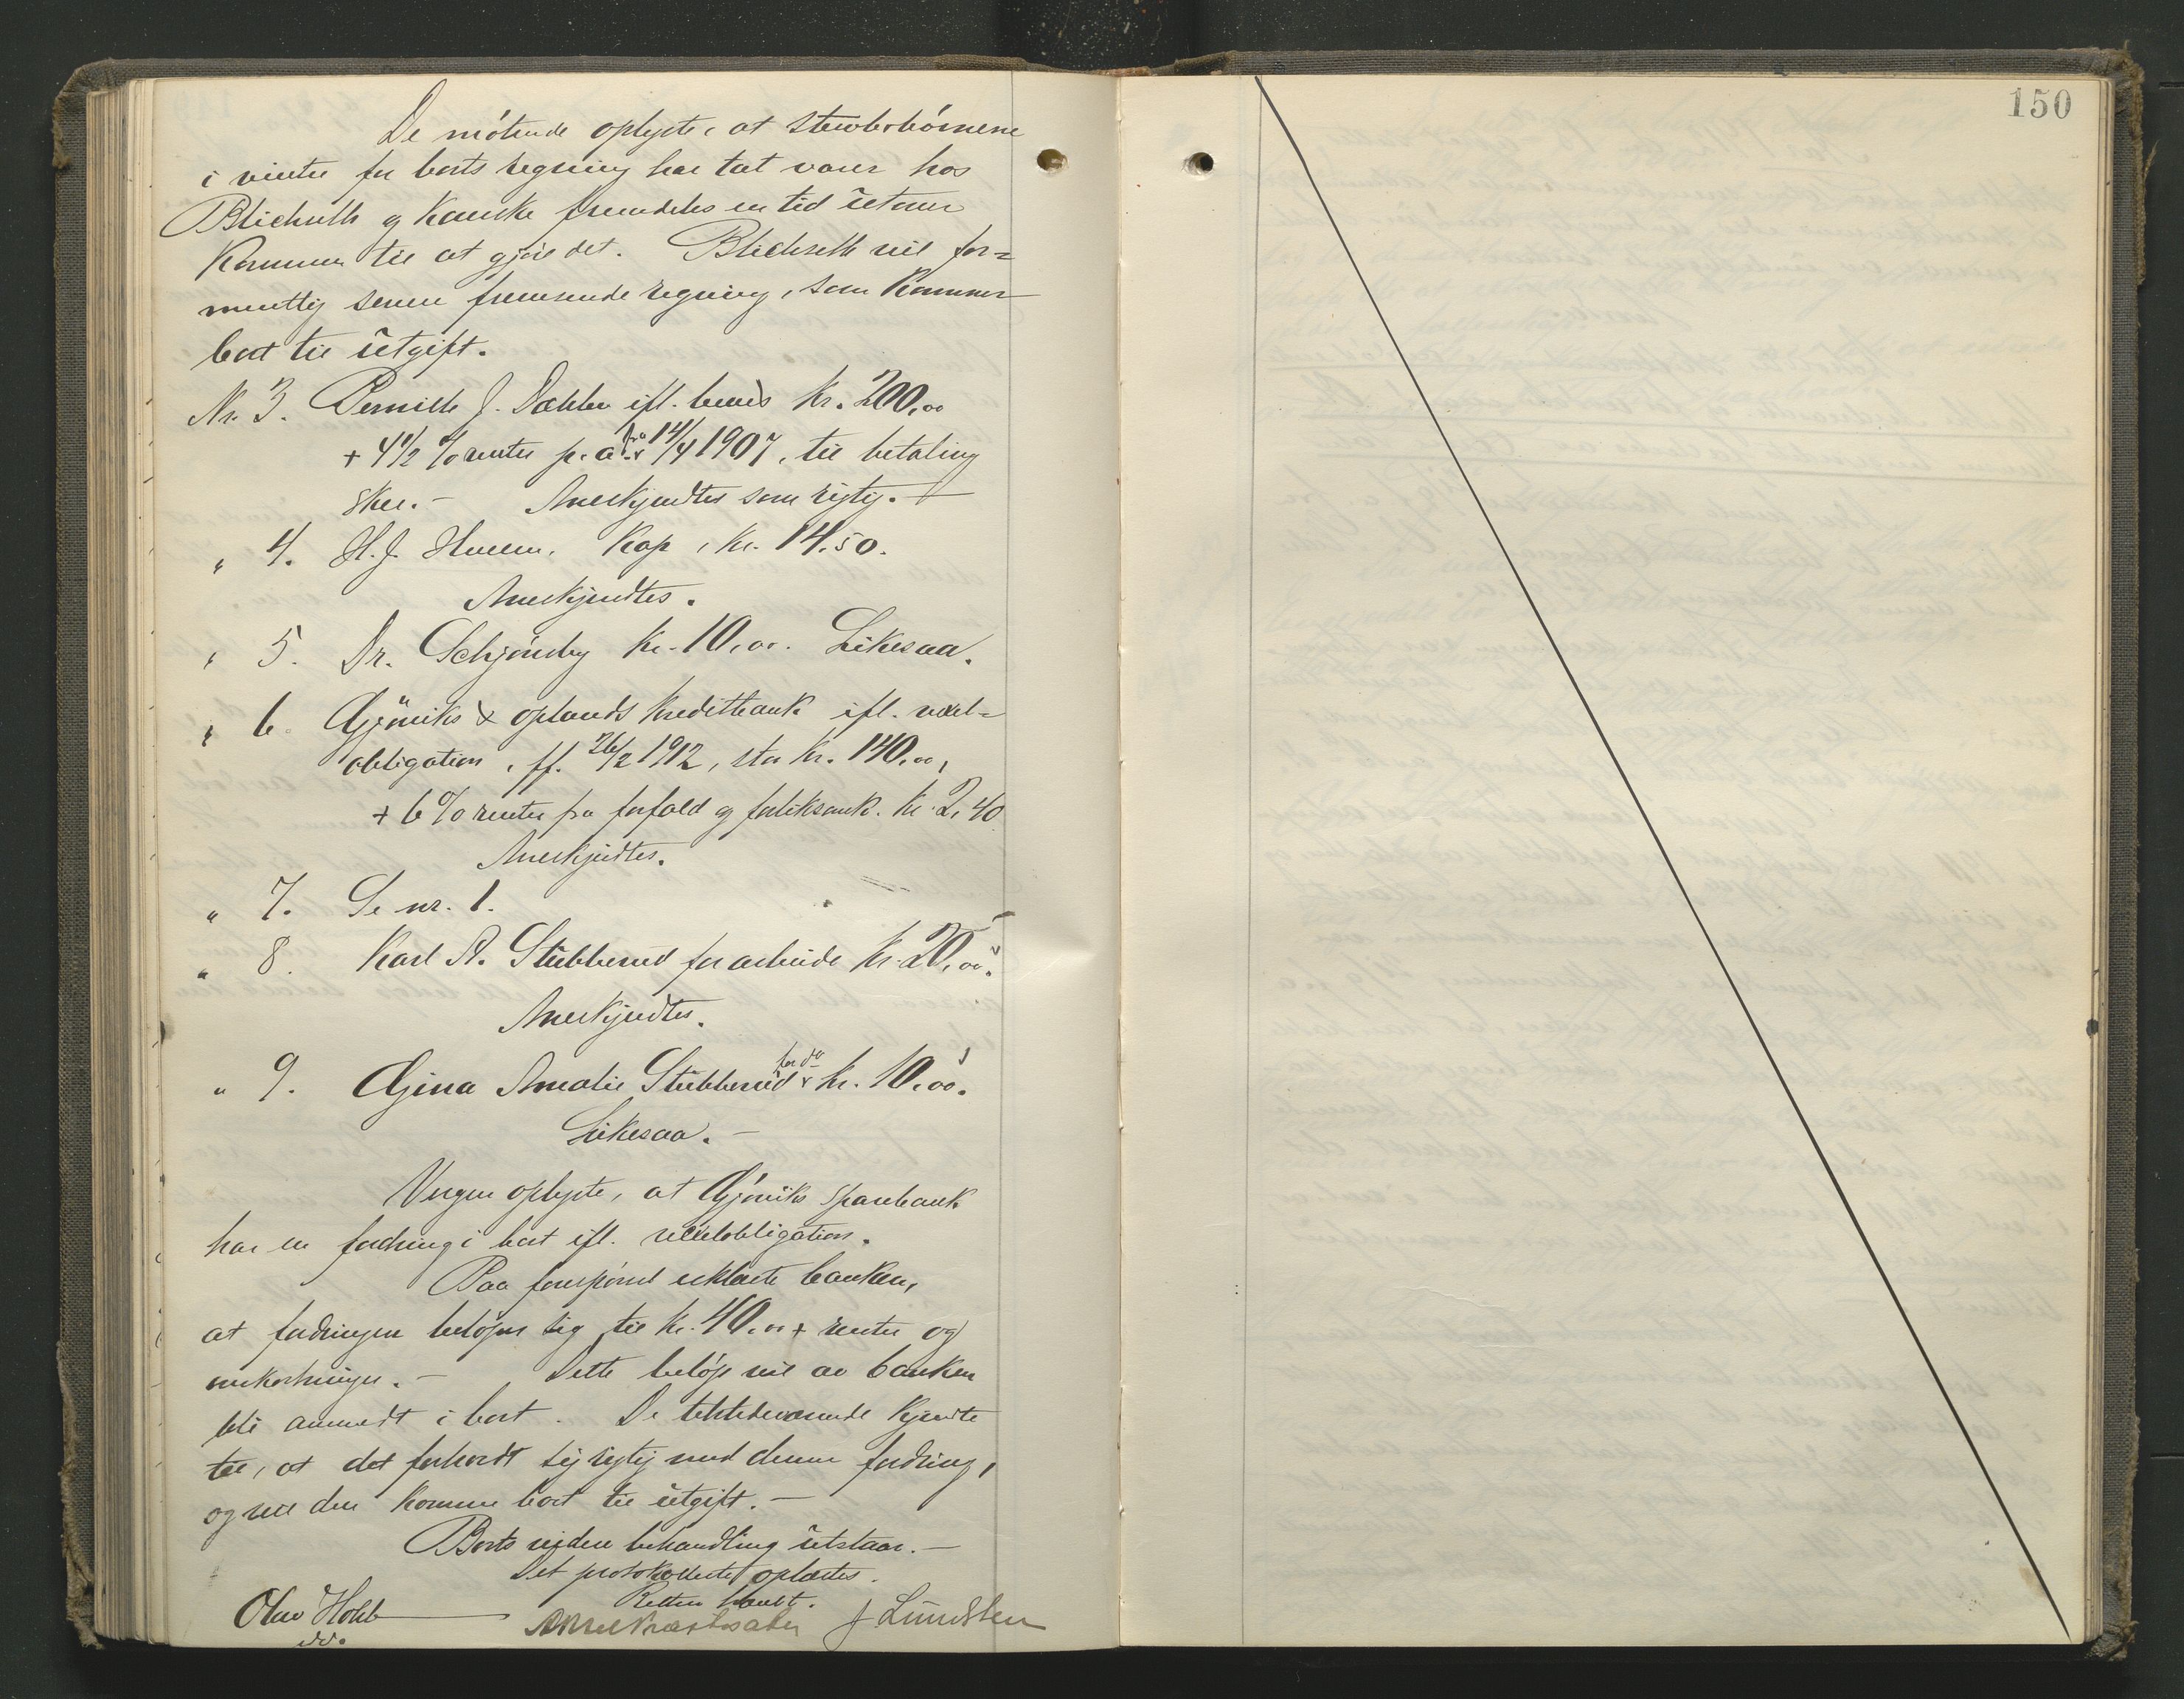 150
De møtende oplyste, at sterbobørnene
i vinter for boets regning har tat varer hos
Blichseth og kanske fremdeles en tid utover
kommer til at gjøre det. Blichseth vil for=
mentlig senere fremsende regning, som kommer
boet til utgift.
Nr. 3. Pernille J. Dahlen ifl. bevis kr. 200,00
+ 4 1/2 % renter p. a. fra 14/4 1907, til betaling
sker. – Anerkjendtes som rigtig. –
" 4. H. J. Kap, kr. 14.50.
Anerkjendtes.
" 5. Dr. Schjønsby kr. 10,00. Likesaa.
" 6. Gjøviks & oplands kreditbank ifl. vexel=
obligation, ff. 26/2 1912, stor kr. 140,00,
+ 6 % renter fra forfald og forliksomk. kr. 2,40
Anerkjendtes.
" 7. Se nr. 1.
" 8. Karl A. Stubberud for arbeide kr. 20,00.
Anerkjendtes.
" 9. Gina Amalie Stubberud for do kr. 10,00.
Likesaa. –
Vergen oplyste, at Gjøviks sparebank
har en fordring i boet ifl. vexelobligation.
Paa forespørsel erklærte banken,
at fordringen beløper sig til kr. 40,00 + renter og
omkostninger. – Dette beløp vil av banken
bli anmeldt i boet. De tilstedeværende kjendte
til, at det forholdt sig rigtig med denne fordring,
og vil den komme boet til utgift. –
Boets videre behandling utstaar. –
Det protokollerte oplæstes.
Retten hævet.
Olav Holth J Lundsten